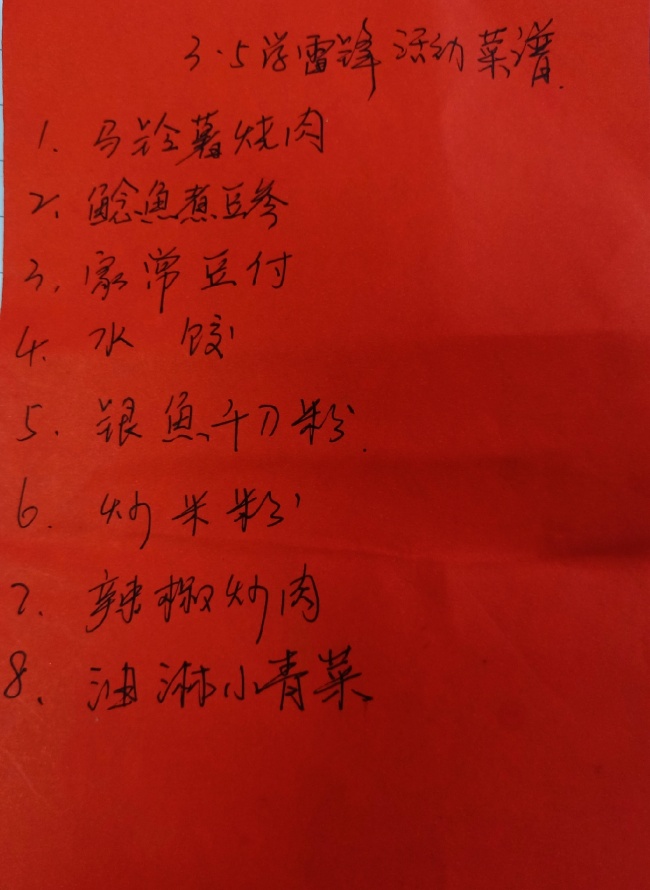 3.5学雷锋活动菜谱.
1. 马铃薯烧肉
2. 鲶鱼煮豆参
3. 家常豆付
4. 水饺
5. 银鱼千刀粉.
6. 炒米粉
7. 辣椒炒肉
8. 油淋小青菜